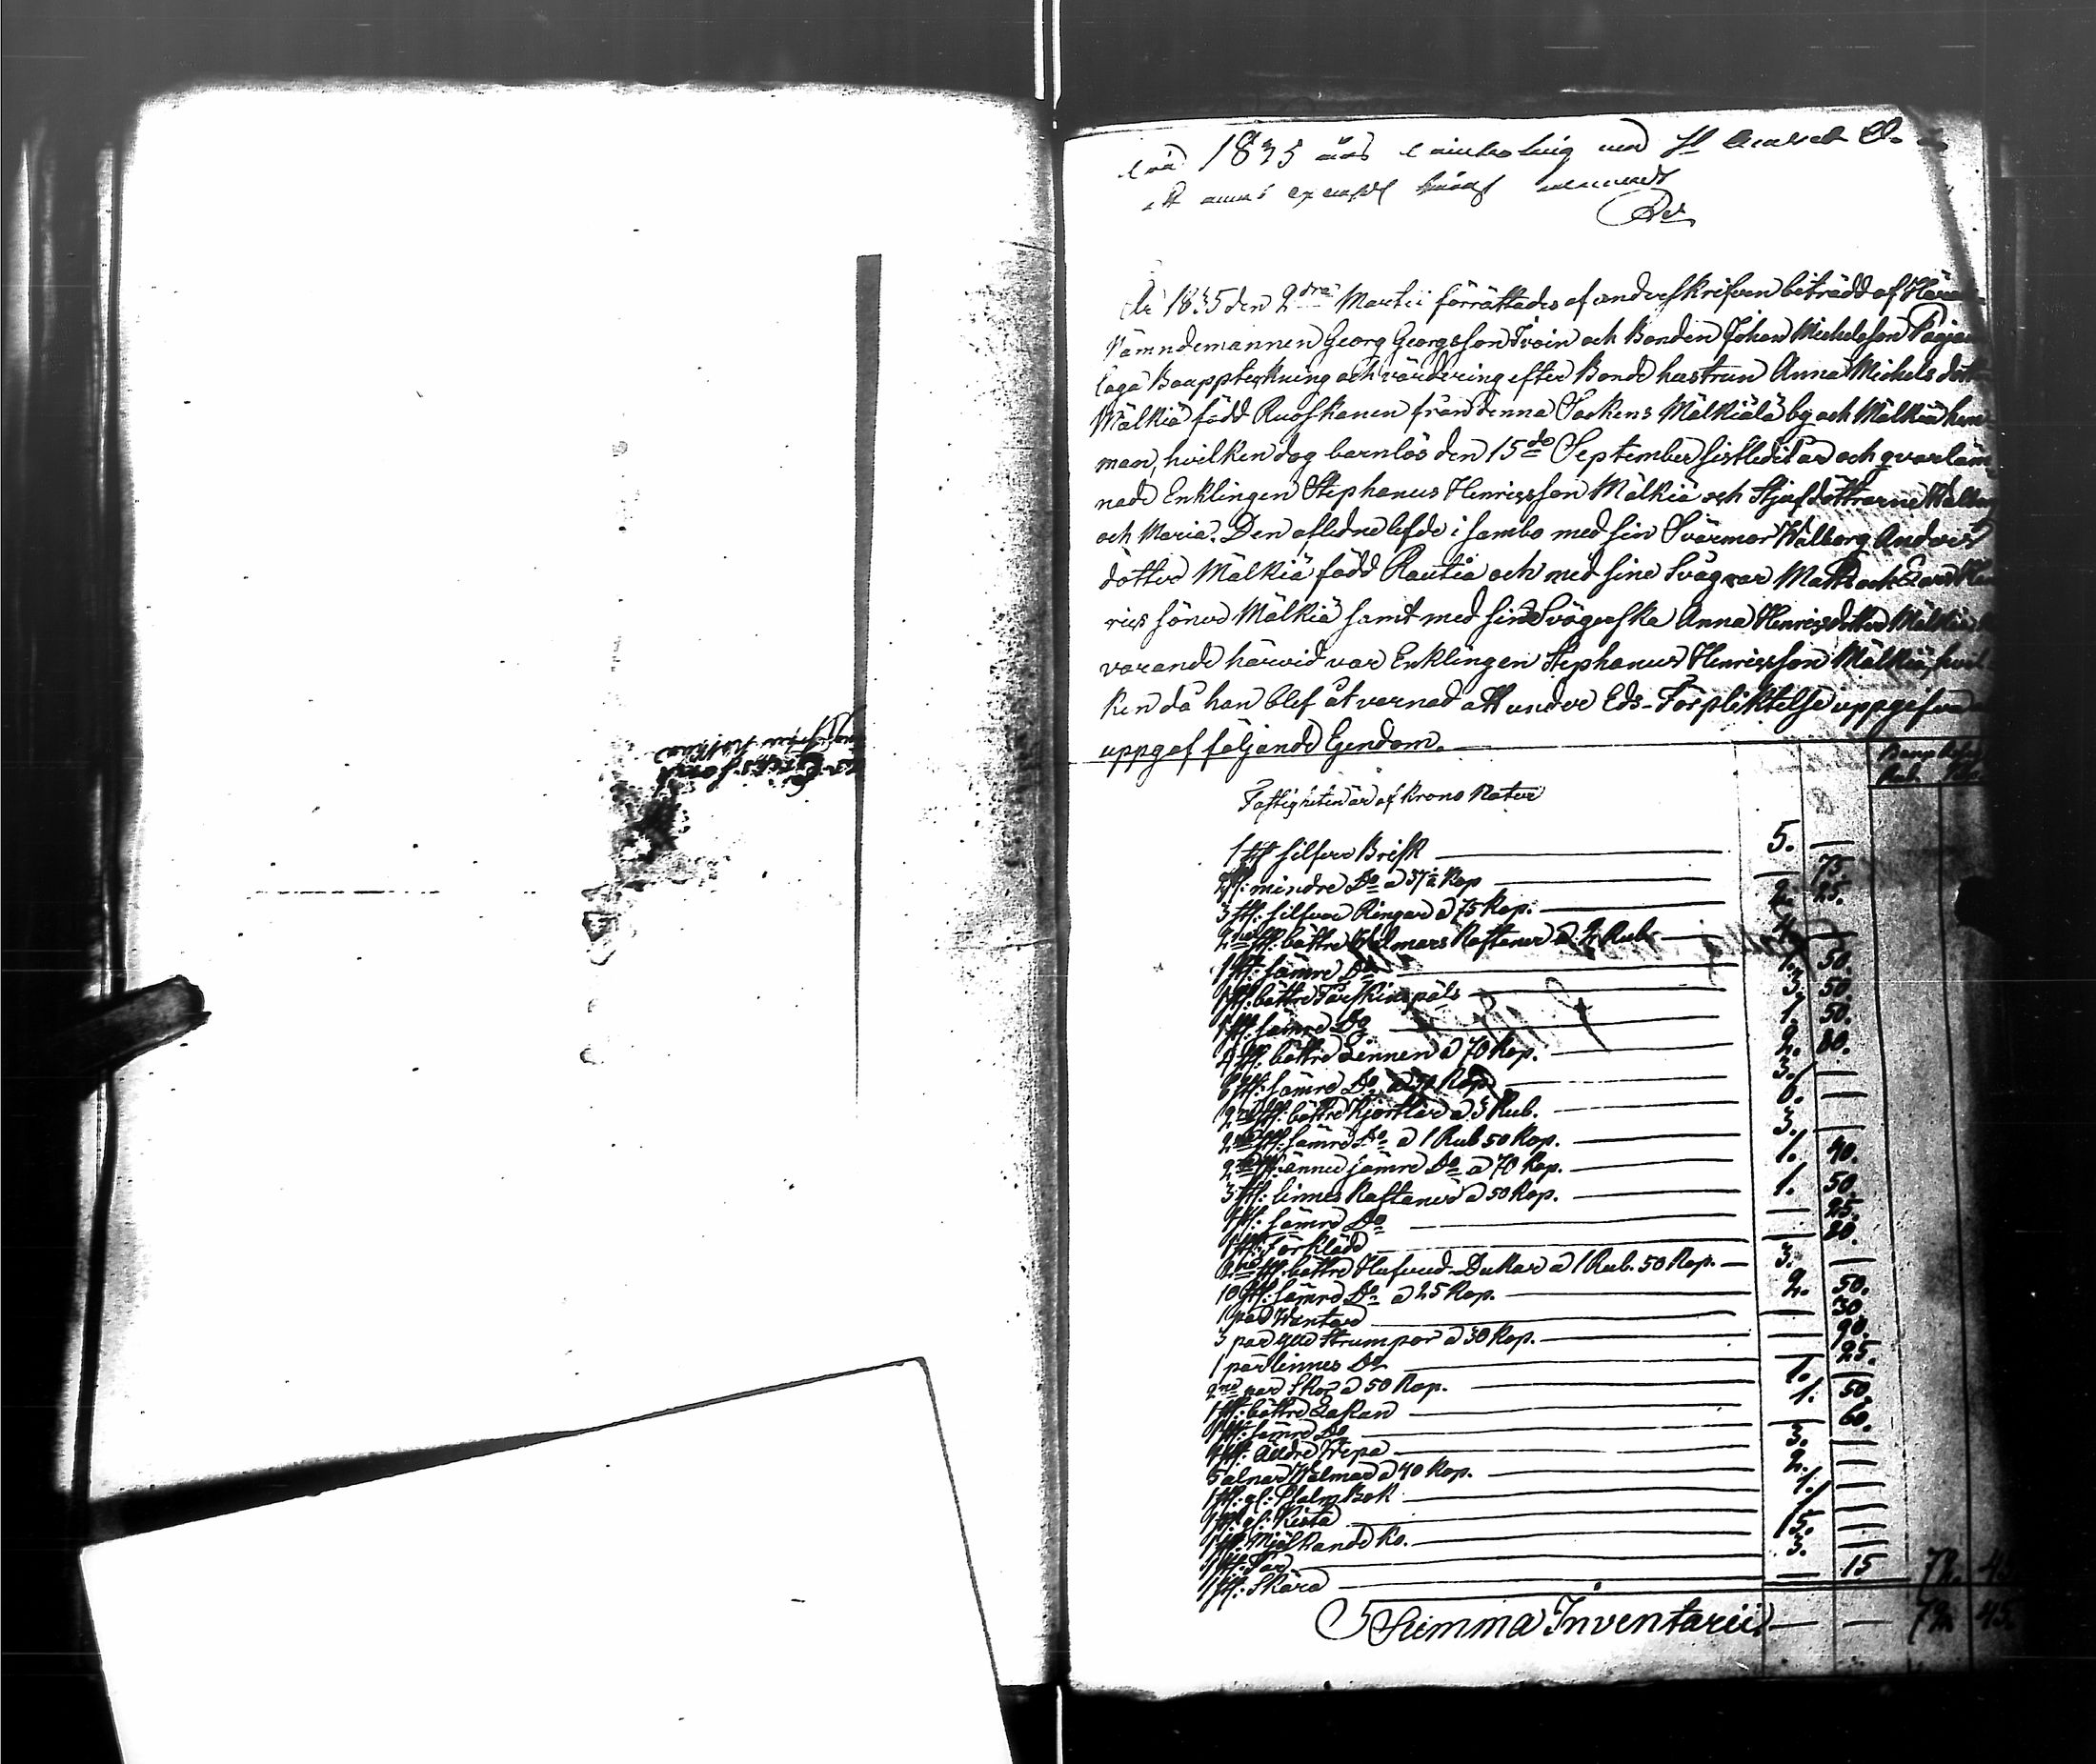 1835 års
År 1835 den 2dra Martii förrättades af underskrifven biträdd af Härads
Nämndemannen Georg Georgsson Troin och Bonden Johan Michelsson
laga Bouppteckning och värdering efter Bonde hustrun Anna Michels dotter
Mälkiä född Ruoskanen från denna Sockens Mälkiälä by och Mälkiä hem
man, hvilken dog barnlös den 15de September sistledit år och qvarläm
nade Enklingen Stephanus Henricsson Mälkiä och Stjufdöttrarne Walborg
och Maria. Den aflidne lefde i sambo med sin Svärmor Walborg Anders
dotter Mälkiä född Rautia och med sine Svågrar Matts och Lars Hen
rics söner Mälkiä samt med sin Svägerska Anna Henricsdotter Mälkiä
varande härvid var Enklingen Stephanus Henricsson Mälkiä, hvil
ken då han blef åtvarnad att under Eds-Förpliktelse uppgifva
uppgaf följande Egendom.
Rub.
Fastigheten är af Krono Natur
1 st: silfver Brisk — 5. —
2 st: mindre Do a 37½ Kop — — 75.
3 st: silfver Ringar a 75 Kop. — 2. 25.
2ne st: bättre Walmars Kaftaner a 2 Rub. — 4. —
1 st: sämre Do — 1. 50.
1 st: bättre Fårskinspäls — 3. 50.
1 st: sämre Do — 1. 50.
4 st: bättre Linnen a 70 Kop. — 2. 80.
6 st: sämre Do a Kop — 3. —
2ne st: bättre Kjortlar a 3 Rub. — 6. —
2ne st: sämre Do a 1 Rub 50 Kop. — 3. —
2ne st: ännu sämre Do a 70 Kop. — 1. 40.
3 st: linnes Kaftaner a 50 Kop. — 1. 50.
1 st: sämre Do — — 25.
1 st: Förkläde — — 20.
2ne st: bättre Hufvud-Dukar a 1 Rub. 50 Kop. — 3. —
10 st: sämre Do a 25 Kop. — 2. 50.
1 par Wantar — — 30.
3 par ylle Strumpor a 30 Kop. — — 90.
1 par linnes Do — — 25.
2ne par Skor a 50 Kop. — 1. —
1 st: bättre Lakan — 1. 50.
1 st: sämre Do — — 60.
1 st: äldre Wepa — 3. —
5 alnar Walmar a 40 Kop. — 2. —
1 st: gl: Psalm Bok — 1. —
1 st: gl: Kista — 1. —
1 st: Mjölkande Ko. — 15. —
1 st: Får — 3. —
1 st: Skära — — 15 72. 45
Summa Inventarii — — 72. 45.